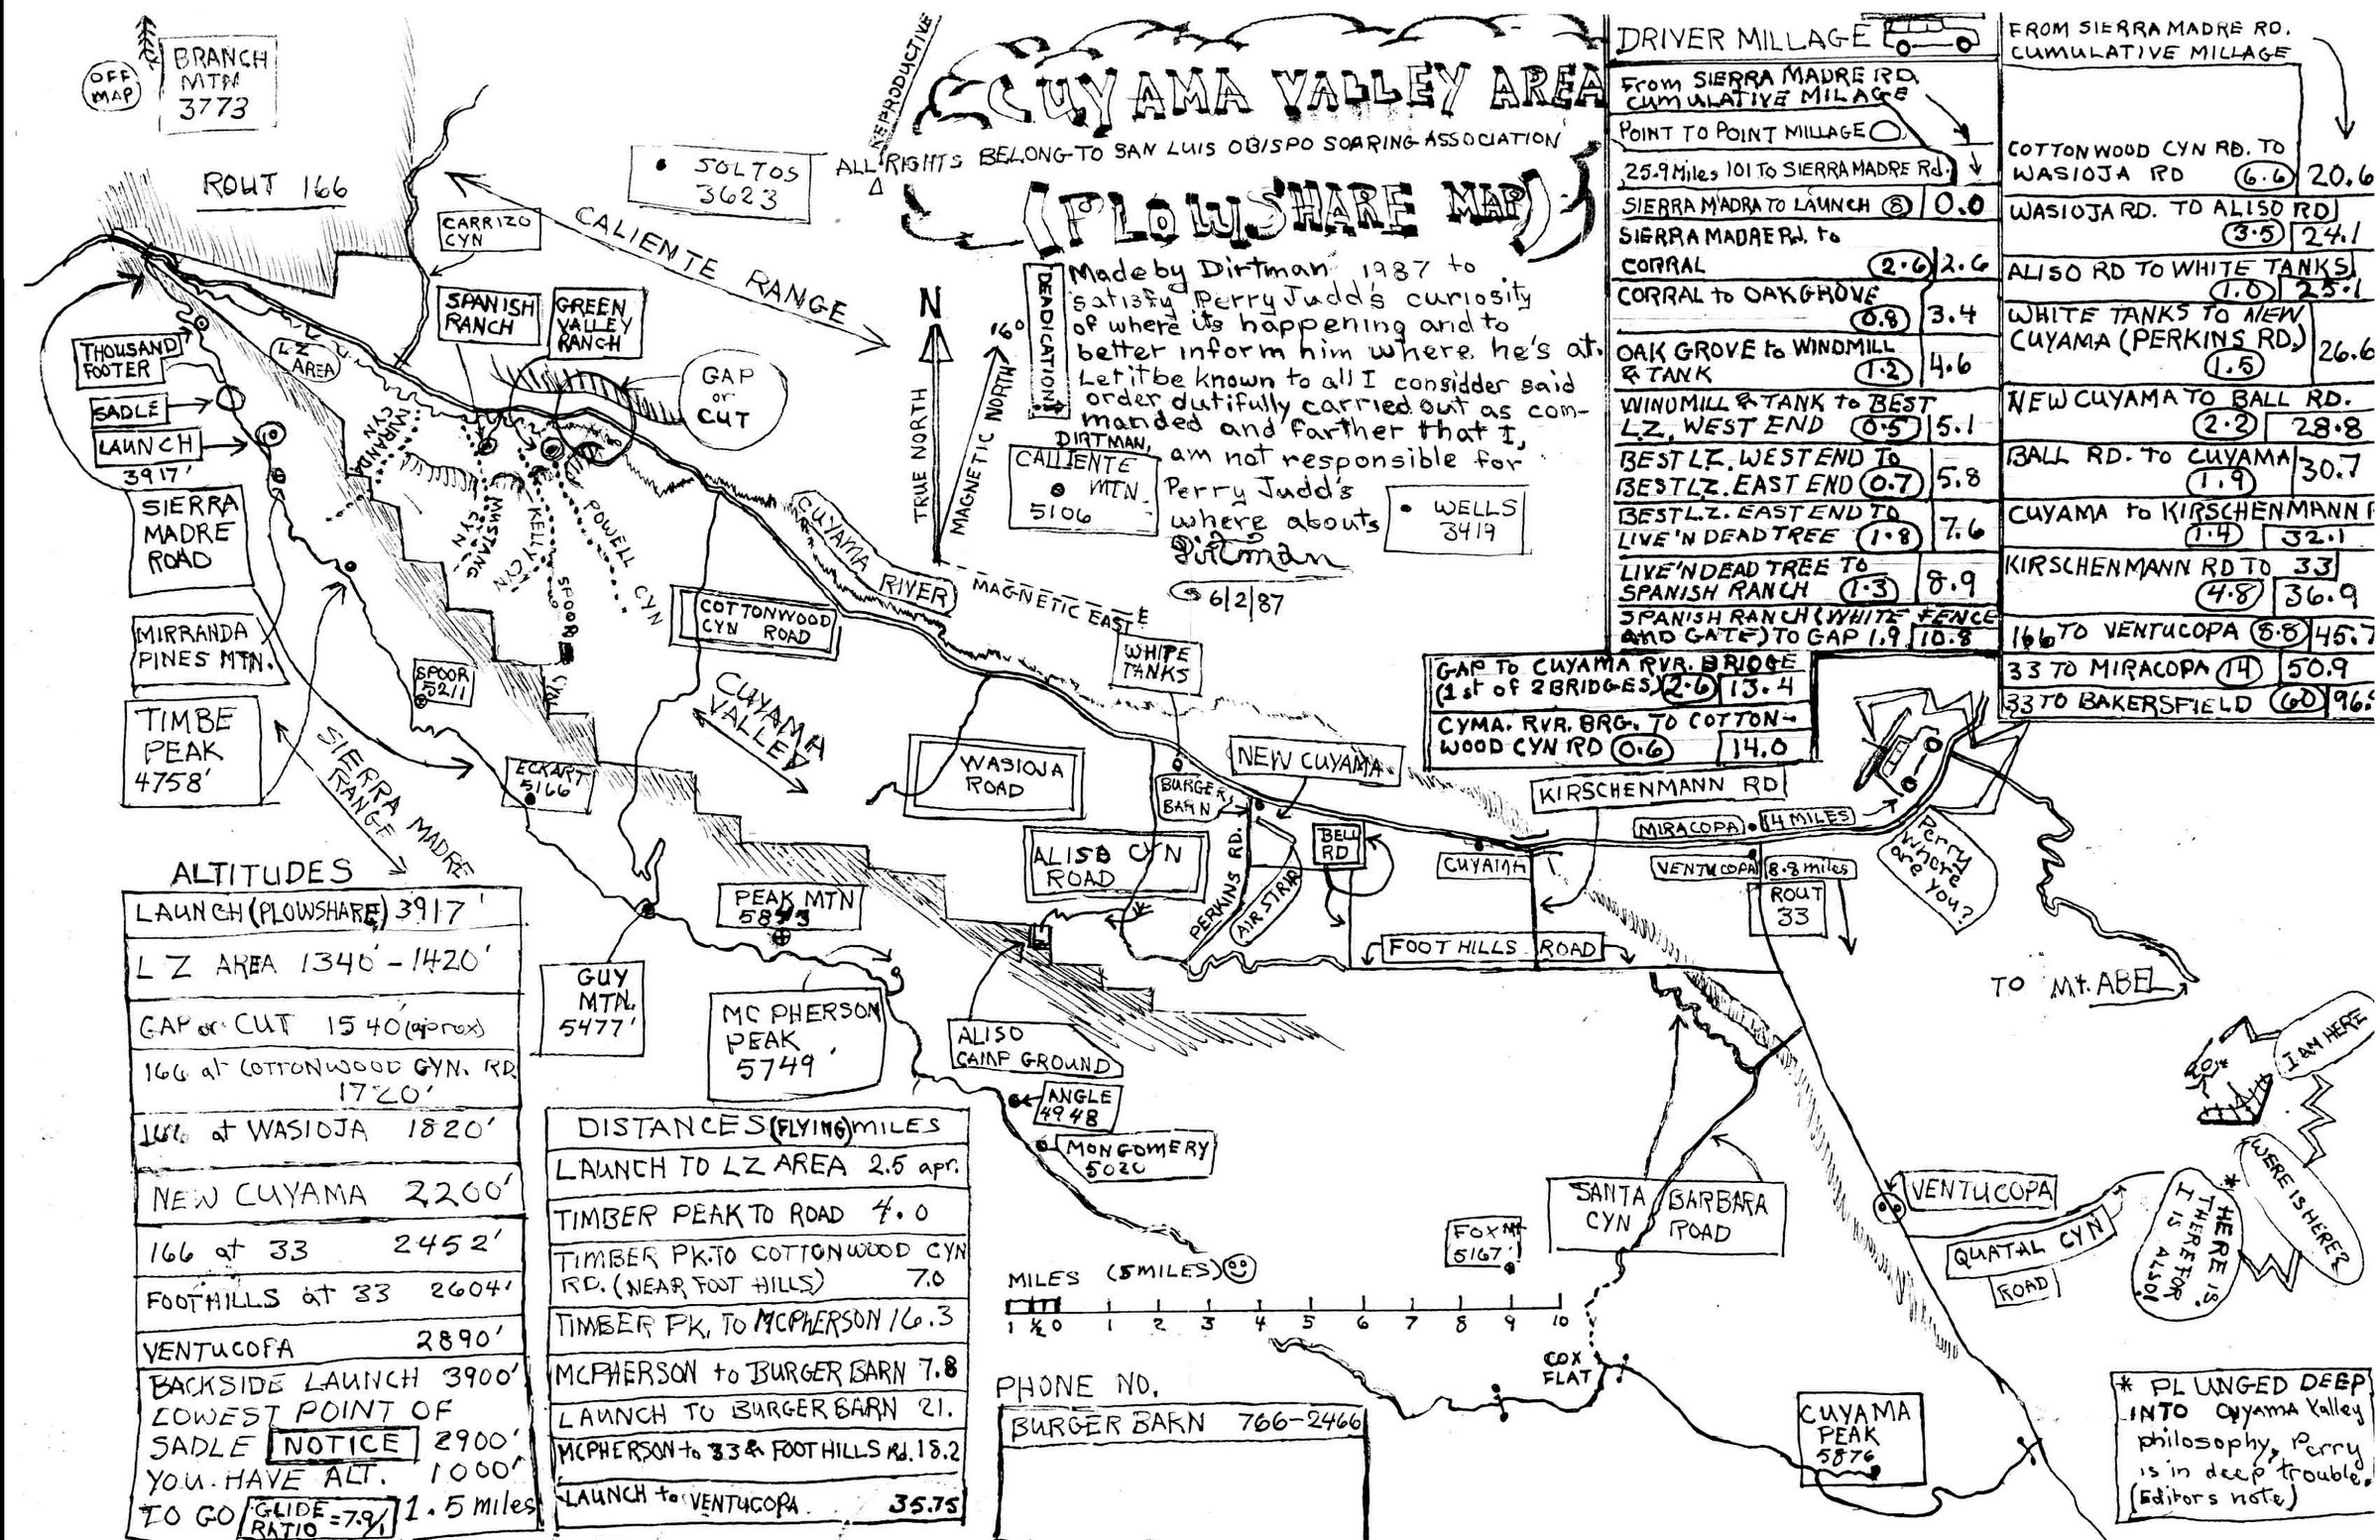 OFF
MAP
BRANCH
MTN
3773
ROUT 166
REPRODUCTIVE
CUYAMA VALLEY AREA
ALL RIGHTS BELONG TO SAN LUIS OBISPO SOARING ASSOCIATION
(PLOWSHARE MAP)
SOLTOS
3623
CARRIZO
CYN
CALIENTE RANGE
SPANISH
RANCH
GREEN
VALLEY
RANCH
GAP
or
CUT
LZ
AREA
THOUSAND
FOOTER
SADLE
LAUNCH
3917'
SIERRA
MADRE
ROAD
MIRRANDA
PINES MTN.
TIMBE
PEAK
4758'
MIRANDA
CYN
MUSTANG
CYN
KELLY CYN
POWELL CYN
SPOOR
CYN
SPOOR
5211
SIERRA MADRE
RANGE
ECKART
5166
CUYAMA
VALLEY
CUYAMA RIVER
COTTONWOOD
CYN ROAD
N
16°
TRUE NORTH
MAGNETIC NORTH
MAGNETIC EAST E
DEADICATION
Made by Dirtman 1987 to
satisfy Perry Judd's curiosity
of where its happening and to
better inform him where he's at.
Let it be known to all I considder said
order dutifully carried out as com-
manded and farther that I,
DIRTMAN, am not responsible for
Perry Judd's
where abouts
Dirtman
6/2/87
CALLIENTE
MTN.
5106
WELLS
3419
DRIVER MILLAGE
From SIERRA MADRE RD.
CUMULATIVE MILAGE
POINT TO POINT MILLAGE
25.9 Miles 101 TO SIERRA MADRE Rd.
SIERRA MADRA TO LAUNCH 8 0.0
SIERRA MADRE Rd. to
CORRAL 2.6 2.6
CORRAL to OAK GROVE
0.8 3.4
OAK GROVE to WINDMILL
& TANK 1.2 4.6
WINDMILL & TANK to BEST
L.Z. WEST END 0.5 5.1
BEST L.Z. WEST END TO
BEST L.Z. EAST END 0.7 5.8
BEST L.Z. EAST END TO
LIVE 'N DEAD TREE 1.8 7.6
LIVE 'N DEAD TREE TO
SPANISH RANCH 1.3 8.9
SPANISH RANCH (WHITE FENCE
AND GATE) TO GAP 1.9 10.8
GAP TO CUYAMA RVR. BRIDGE
(1st of 2 BRIDGES) 2.6 13.4
CYMA. RVR. BRG. TO COTTON-
WOOD CYN RD 0.6 14.0
FROM SIERRA MADRE RD.
CUMULATIVE MILLAGE
COTTONWOOD CYN RD. TO
WASIOJA RD 6.6 20.6
WASIOJA RD. TO ALISO RD
3.5 24.1
ALISO RD TO WHITE TANKS
1.0 25.1
WHITE TANKS TO NEW
CUYAMA (PERKINS RD.)
1.5 26.6
NEW CUYAMA TO BALL RD.
2.2 28.8
BALL RD. TO CUYAMA
1.9 30.7
CUYAMA to KIRSCHENMANN
1.4 32.1
KIRSCHENMANN RD TO 33
4.8 36.9
166 TO VENTUCOPA 8.8 45.7
33 TO MIRACOPA 14 50.9
33 TO BAKERSFIELD 60 96.
WHITE
TANKS
WASIOJA
ROAD
BURGER
BARN
NEW CUYAMA
ALISO CYN
ROAD
PERKINS RD.
AIR STRIP
BELL
RD
KIRSCHENMANN RD
CUYAMA
MIRACOPA 14 MILES
VENTUCOPA 8.8 miles
ROUT
33
Perry
where
are you?
FOOT HILLS ROAD
TO Mt. ABEL
PEAK MTN
5843
GUY
MTN.
5477'
MC PHERSON
PEAK
5749'
ALISO
CAMP GROUND
ANGLE
4948
MONGOMERY
5020
ALTITUDES
LAUNCH (PLOWSHARE) 3917'
LZ AREA 1340'-1420'
GAP or CUT 1540 (aprox)
166 at COTTONWOOD CYN. RD.
1720'
166 at WASIOJA 1820'
NEW CUYAMA 2200'
166 at 33 2452'
FOOTHILLS at 33 2604'
VENTUCOPA 2890'
BACKSIDE LAUNCH 3900'
LOWEST POINT OF
SADLE NOTICE 2900'
YOU HAVE ALT. 1000'
TO GO GLIDE RATIO = 7.9/1 1.5 miles
DISTANCES (FLYING) MILES
LAUNCH TO LZ AREA 2.5 apr.
TIMBER PEAK TO ROAD 4.0
TIMBER PK. TO COTTONWOOD CYN
RD. (NEAR FOOT HILLS) 7.0
TIMBER PK. TO MCPHERSON 16.3
MCPHERSON to BURGER BARN 7.8
LAUNCH TO BURGER BARN 21.
MCPHERSON to 33 & FOOT HILLS Rd. 18.2
LAUNCH to VENTUCOPA 35.75
MILES (5 MILES)
1 ½ 0 1 2 3 4 5 6 7 8 9 10
PHONE NO.
BURGER BARN 766-2466
FOX MT
5167'
SANTA BARBARA
CYN ROAD
COX
FLAT
CUYAMA
PEAK
5876
VENTUCOPA
QUATAL CYN
ROAD
I AM HERE
WERE IS HERE?
* HERE IS.
THERE FOR
I IS
ALSO!
* PLUNGED DEEP
INTO Cuyama Valley
philosophy, Perry
is in deep trouble.
(Editors note)